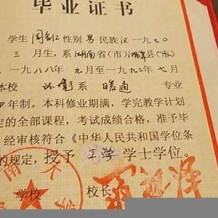 毕业证书
学生 性别男 民族汉 一九七〇
三月生,系湖南省(市) 县(市)
一九八八年九月至一九九二年七月
本校 系 专业
年制。本科修业期满,学完教学计划
定的全部课程,考试成绩合格,准予毕
经审核符合《中华人民共和国学位条
的规定,授予工学学士学位。
学校
校长